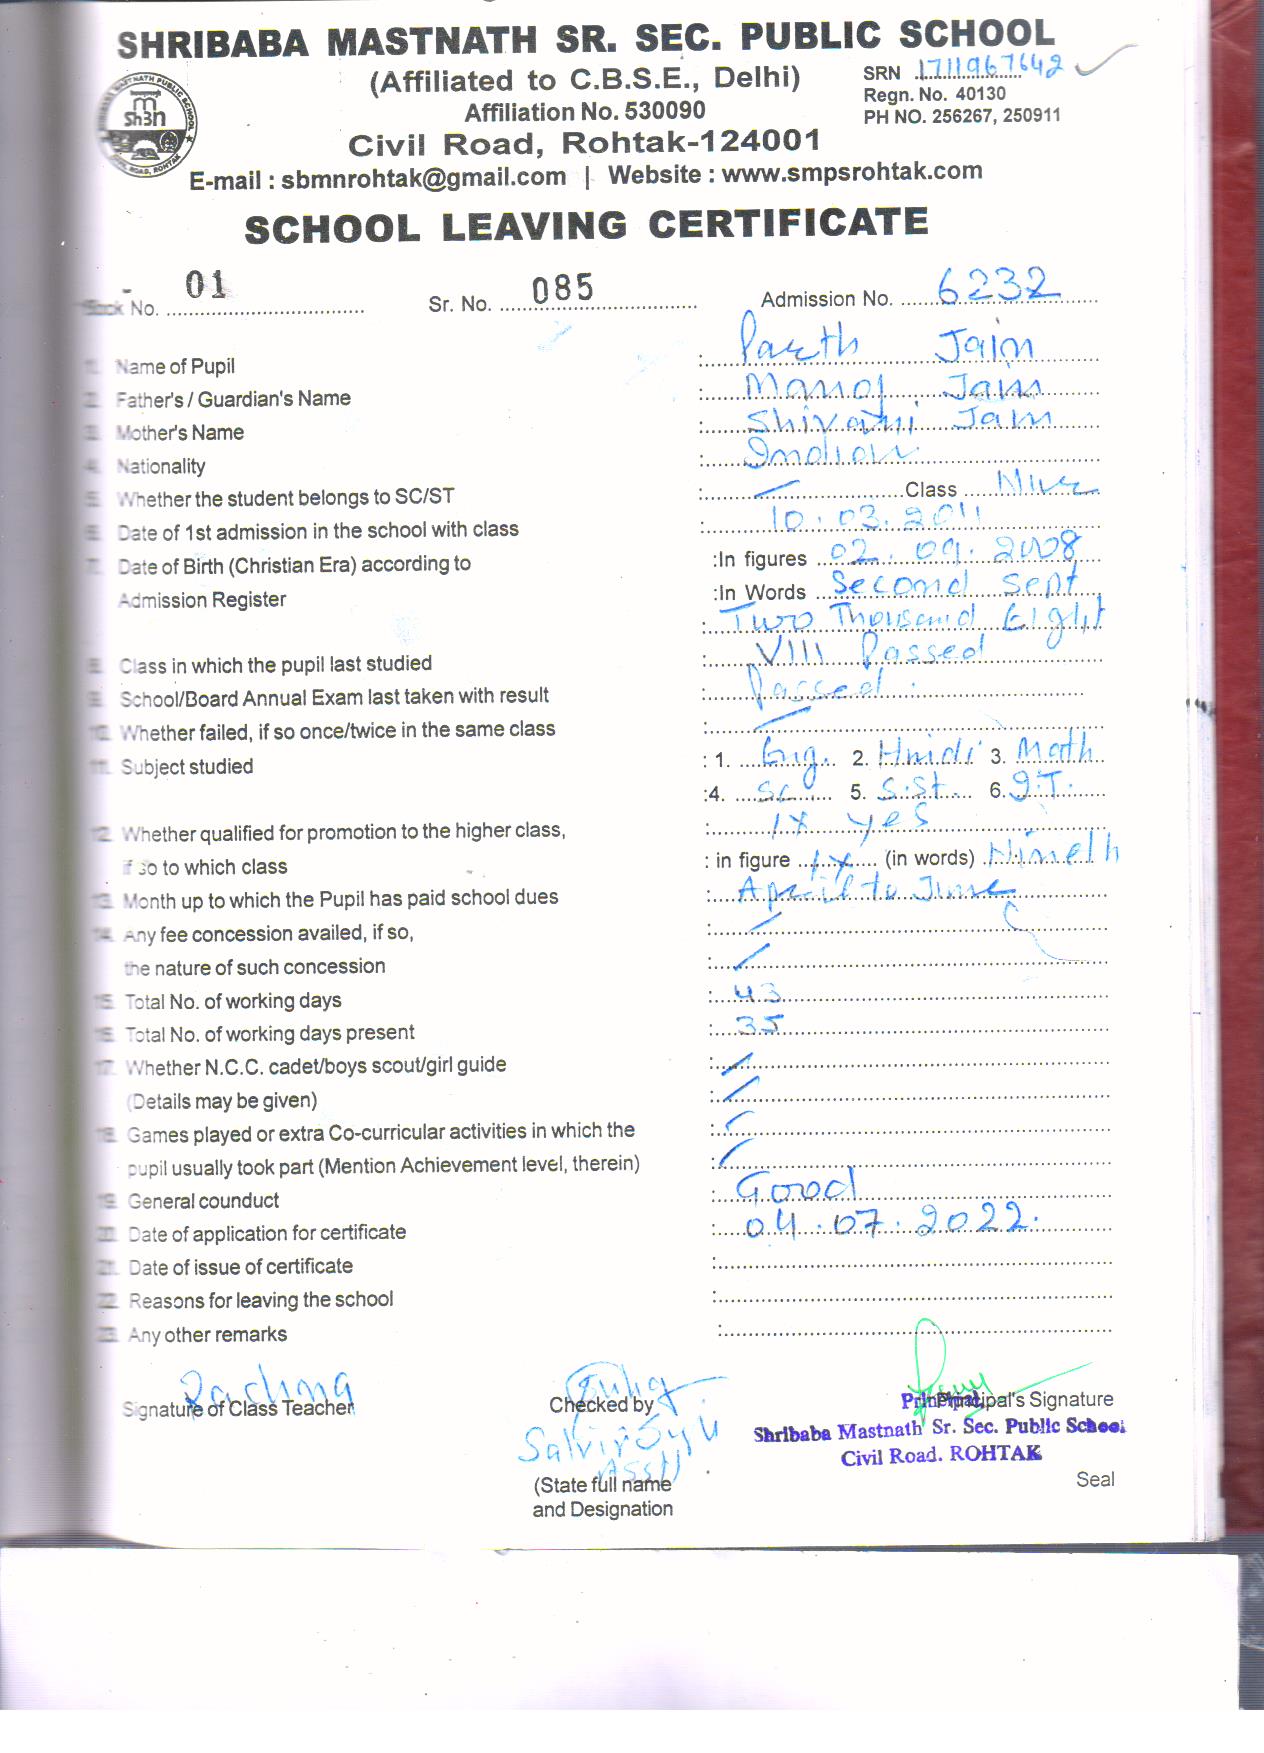 SHRIBABA MASTNATH SR. SEC. PUBLIC SCHOOL
(Affiliated to C.B.S.E., Delhi)
SRN 1711967642
Affiliation No. 530090
Regn. No. 40130
PH NO. 256267, 250911
Civil Road, Rohtak-124001
E-mail : sbmnrohtak@gmail.com | Website : www.smpsrohtak.com
SCHOOL LEAVING CERTIFICATE
Book No. 01 Sr. No. 085 Admission No. 6232
1. Name of Pupil : Parth Jain
2. Father's / Guardian's Name : Manoj Jain
3. Mother's Name : Shivani Jain
4. Nationality : Indian
5. Whether the student belongs to SC/ST : Class
6. Date of 1st admission in the school with class : 10.03.2011
7. Date of Birth (Christian Era) according to :In figures 02.09.2008
Admission Register :In Words Second Sept
: Two Thousand Eight
8. Class in which the pupil last studied : VIII Passed
9. School/Board Annual Exam last taken with result : Passed
10. Whether failed, if so once/twice in the same class :
11. Subject studied : 1. Eng. 2. Hindi 3. Math
:4. Sc. 5. S.St. 6. I.T.
12. Whether qualified for promotion to the higher class, : IX yes
if so to which class : in figure IX (in words) Nineth
13. Month up to which the Pupil has paid school dues : April to June
14. Any fee concession availed, if so, :
the nature of such concession :
15. Total No. of working days : 43
16. Total No. of working days present : 35
17. Whether N.C.C. cadet/boys scout/girl guide :
(Details may be given) :
18. Games played or extra Co-curricular activities in which the :
pupil usually took part (Mention Achievement level, therein) :
19. General counduct : Good
20. Date of application for certificate : 04.07.2022.
21. Date of issue of certificate :
22. Reasons for leaving the school :
23. Any other remarks :
Signature of Class Teacher Checked by Principal's Signature
Principal,
Shribaba Mastnath Sr. Sec. Public School
Civil Road. ROHTAK
(State full name Seal
and Designation